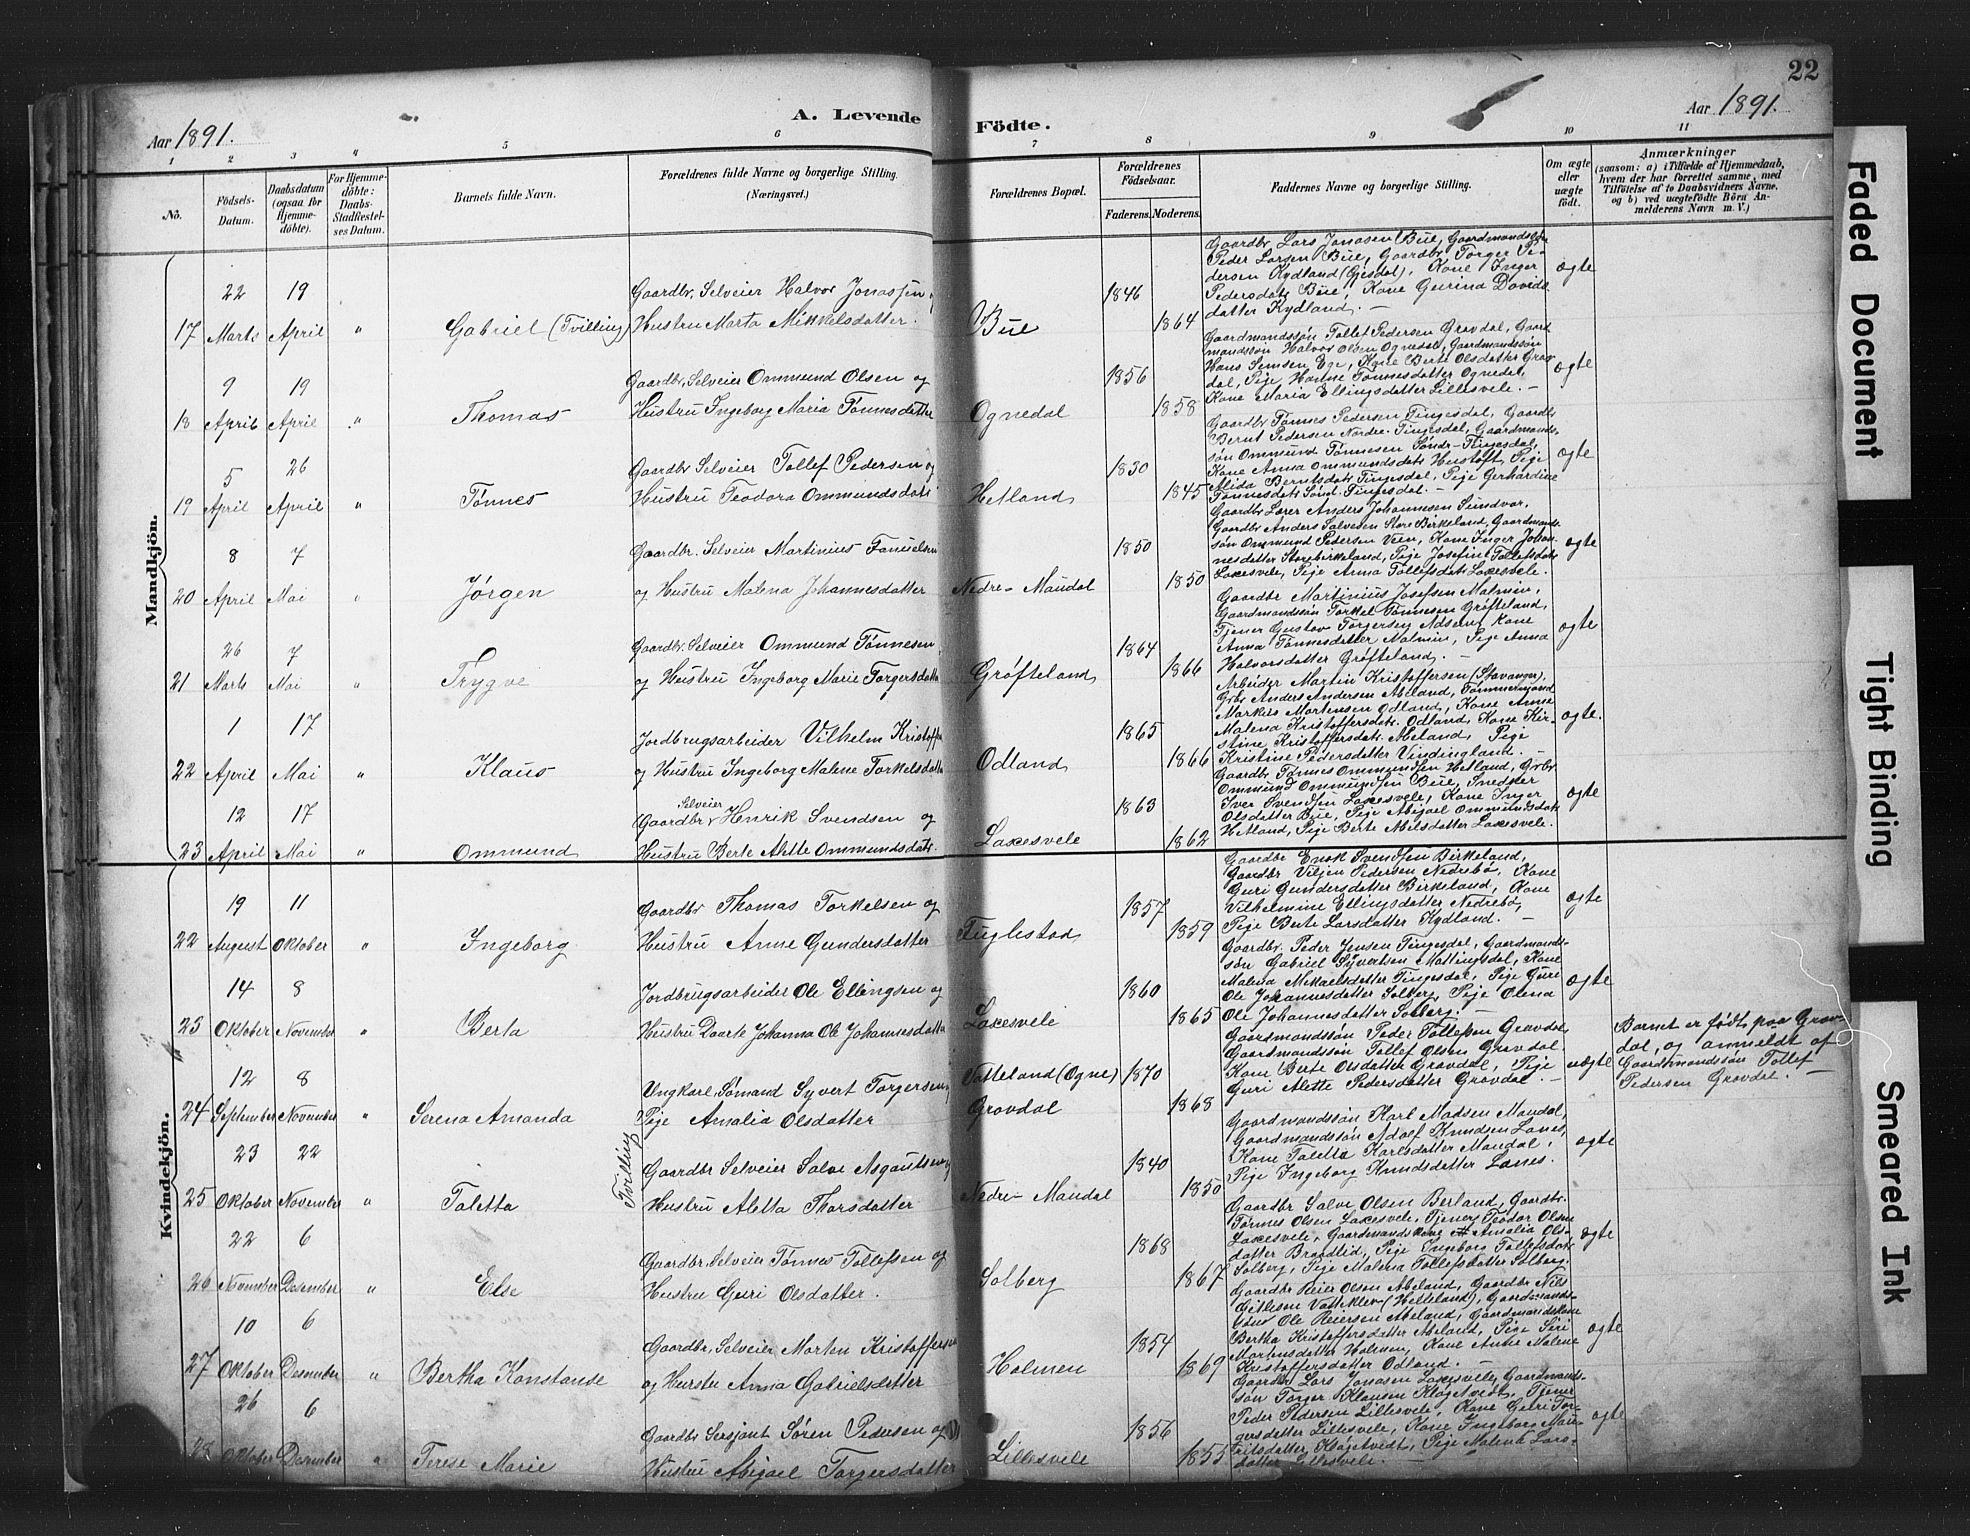 22
Aar 1891.
A. Levende Födte.
Aar 1891.
1 2 3 4 5 6 7 8 9 10 11
No.
Födsels-Datum.
Daabsdatum (ogsaa for Hjemme-döbte).
For Hjemme-döbte: Daabs-Stadfæstel-ses Datum.
Barnets fulde Navn.
Forældrenes fulde Navne og borgerlige Stilling. (Næringsvei.)
Forældrenes Bopæl.
Forældrenes Födselsaar.
Faderens. Moderens.
Faddernes Navne og borgerlige Stilling.
Om ægte eller uægte födt.
Anmærkninger
(saasom: a) i Tilfælde af Hjemmedaab, hvem der har forrettet samme, med Tilföielse af to Daabsvidners Navne, og b) ved uægtefödte Börn An-melderens Navn m. V.)
Mandkjön.
17 22 Marts 19 April " Gabriel (Tvilling) Gaardbr. Selveier Halvor Jonassen, Hustru Marta Mikkelsdatter. Bue 1846 1864
Gaardbr. Lars Jonasen Bue, Gaardmandssön
Peder Larsen Bue, Gaardbr. Torger Pe-
dersen Kydland (Gjesdal), Kone Inger
Pedersdatr Bue, Kone Gurina Davids-
datter Kydland. —
ægte
18 9 April 19 April " Thomas Gaardbr. Selveier Ommund Olsen og Hustru Ingeborg Maria Tönnesdatter Ognedal 1856 1858
Gaardmandssön Tollef Pedersen Gravdal, Gaard
mandssön Halvor Olsen Ognedal, Gaardmandssön
Hans Jensen Ege, Kone Berte Olsdatter Grav
dal, Pige Hanne Tönnesdatter Ognedal,
Kone Maria Ellingsdatter Lillesvele. —
ægte
19 5 April 26 April " Tönnes Gaardbr Selveier Tollef Pedersen og Hustru Teodora Ommundsdatr Hetland 1830 1845
Gaardbr Tönnes Pedersen Tingesdal, Gaardb
Bernt Pedersen Nordre-Tingesdal, Gaardmands-
sön Ommund Tönnesen Söndr-Tingesdal,
Kone Anna Ommundsdatr Hustoft, Pige
Alida Berntsdatr Tingesdal, Pige Gerhardine
Tönnesdatr Sönd. Tingesdal. —
ægte
20 8 April 7 Mai " Jörgen Gaardbr. Selveier Martinius Tanuelsen og Hustru Malena Johannesdatter Nedre-Maudal 1850 1850
Gaardbr Lærer Anders Johannesen Sundvor,
Gaardbr Anders Salvesen Store Birkeland, Gaardmands-
sön Ommund Pedersen Veen, Kone Inger Johan-
nesdatter Storebirkeland, Pige Josefine Tollefsdatr
Laxesvele, Pige Anna Tollefsdatr Laxesvele.
ægte
21 26 Marts 7 Mai " Trygve Gaardbr. Selveier Ommund Tönnesen og Hustru Ingeborg Marie Torgersdatter Gröfteland 1864 1866
Gaardbr Martinius Josefsen Malmin,
Gaardmandssön Torkel Tönnesen Gröfteland,
Tjener Gustav Torgersen Adsen, Kone
Anna Tönnesdatter Malmin, Pige Anna
Halvorsdatter Gröfteland. —
ægte
22 1 April 17 Mai " Klaus Jordbrugsarbeider Vilhelm Kristoffer og Hustru Ingeborg Malene Torkelsdatter Odland 1865 1866
Arbeider Martin Kristoffersen (Stavanger),
Grbr Anders Andersen Aleland, Tömmermand
Markus Mortensen Odland, Kone Anne
Malena Kristoffersdatr. Odland, Kone Kir-
stine Kristoffersdatr. Aleland, Pige
Kristine Pedersdatter Vindingland. —
ægte.
23 12 April 17 Mai " Ommund Gaardbr Selveier Henrik Svendsen og Hustru Berte Alette Ommundsdatr. Laxesvele 1863 1862
Gaardbr Tönnes Ommundsen Hetland, Grbr
Ommund Ommundsen Bue, Snedker
Iver Svendsen Laxesvele, Kone Inger
Olsdatter Bue, Pige Abigael Ommundsdatr
Hetland, Pige Berte Abelsdatter Laxesvele.
ægte
Kvindekjön.
22 19 August 11 Oktober " Ingeborg Gaardbr Thomas Torkelsen og Hustru Anne Gundersdatter Fuglestad 1857 1859
Gaardbr Enok Svendsen Birkeland,
Gaardbr Viljen Pedersen Nedrebö, Kone
Guri Gundersdatter Birkeland, Kone
Vilhelmine Ellingsdatter Nedrebö,
Pige Berte Larsdatter Kydland. —
ægte
23 14 Oktober 8 November " Berta Jordbrugsarbeider Ole Ellingsen og Hustru Daarte Johanna Ole Johannesdatter Laxesvele 1860 1865
Gaardbr. Peder Jensen Tingesdal, Gaardmands-
sön Gabriel Syvertsen Mattingsdal, Kone
Malena Mikaelsdatter Tingesdal, Pige Guri
Ole Johannesdatter Solberg, Pige Olena
Ole Johannesdatter Solberg. —
ægte
24 12 September 8 November " Serena Amanda Ungkarl, Sömand Syvert Torgersen, Pige Amalia Olsdatter Vatteland (Ogne) Gravdal 1870 1868
Gaardmandssön Peder Tollefsen Gravdal,
Gaardmandssön Tollef Olsen Gravdal.
Kone Berte Olsdatter Gravdal, Pige
Guri Alette Pedersdatter Gravdal. —
uægte
Barnet er födt paa Grav-
dal, og anmeldt af
Gaardmandssön Tollef
Pedersen Gravdal. —
25 23 Oktober 22 November " Taletta Tvilling Gaardbr Selveier Salve Asgautsen og Hustru Aletta Tharsdatter Nedre-Maudal 1840 1850
Gaardmandssön Karl Madsen Maudal,
Gaardmandssön Adolf Knudsen Lanes,
Kone Taletta Karlsdatter Maudal,
Pige Ingeborg Knudsdatter Lanes.
ægte
26 22 November 6 Desember " Else Gaardbr. Selveier Tönnes Tollefsen og Hustru Guri Olsdatter. Solberg 1868 1867
Gaardbr Salve Olsen Berland, Gaardbr.
Tönnes Olsen Laxesvele, Tjener Teodor Olsen
Laxesvele, Gaardmandskone Amalia Ols-
datter Braadlid, Pige Ingeborg Tollefsdatr
Solberg, Pige Malena Tollefsdatter Solberg.
ægte
27 10 Oktober 6 Desember " Bertha Konstanse Gaardbr. Selveier Morten Kristoffersen og Hurstu Anna Gabrielsdatter Holmen 1854 1869
Gaardbr Reier Olsen Aleland, Gaardbr Nils
Gitlesen Vatteklev (Helleland), Gaardmands-
Ole Reiersen Aleland, Gaardmandskone
Bertha Kristoffersdatter Aleland, Pige Siri
Martensdatter Holmen, Kone Anne Malene
Kristoffersdatter Odland. —
ægte
28 26 Oktober 6 Desember " Terese Marie Gaardbr Sersjant Sören Pedersen og Hustru Abigael Torgersdatter Lillesvele 1856 1855
Gaardbr Lars Jonasen Laxesvele, Gaardmands-
sön Torger Klausen Klögetvedt, Tjener
Peder Pedersen Lillesvele, Kone Guri Tor-
gersdatter Lillesvele, Kone Ingeborg Mau-
ritsdatter Klögetvedt, Pige Malena Lars-
datter Lillesvele. —
ægte
Faded Document
Tight Binding
Smeared Ink